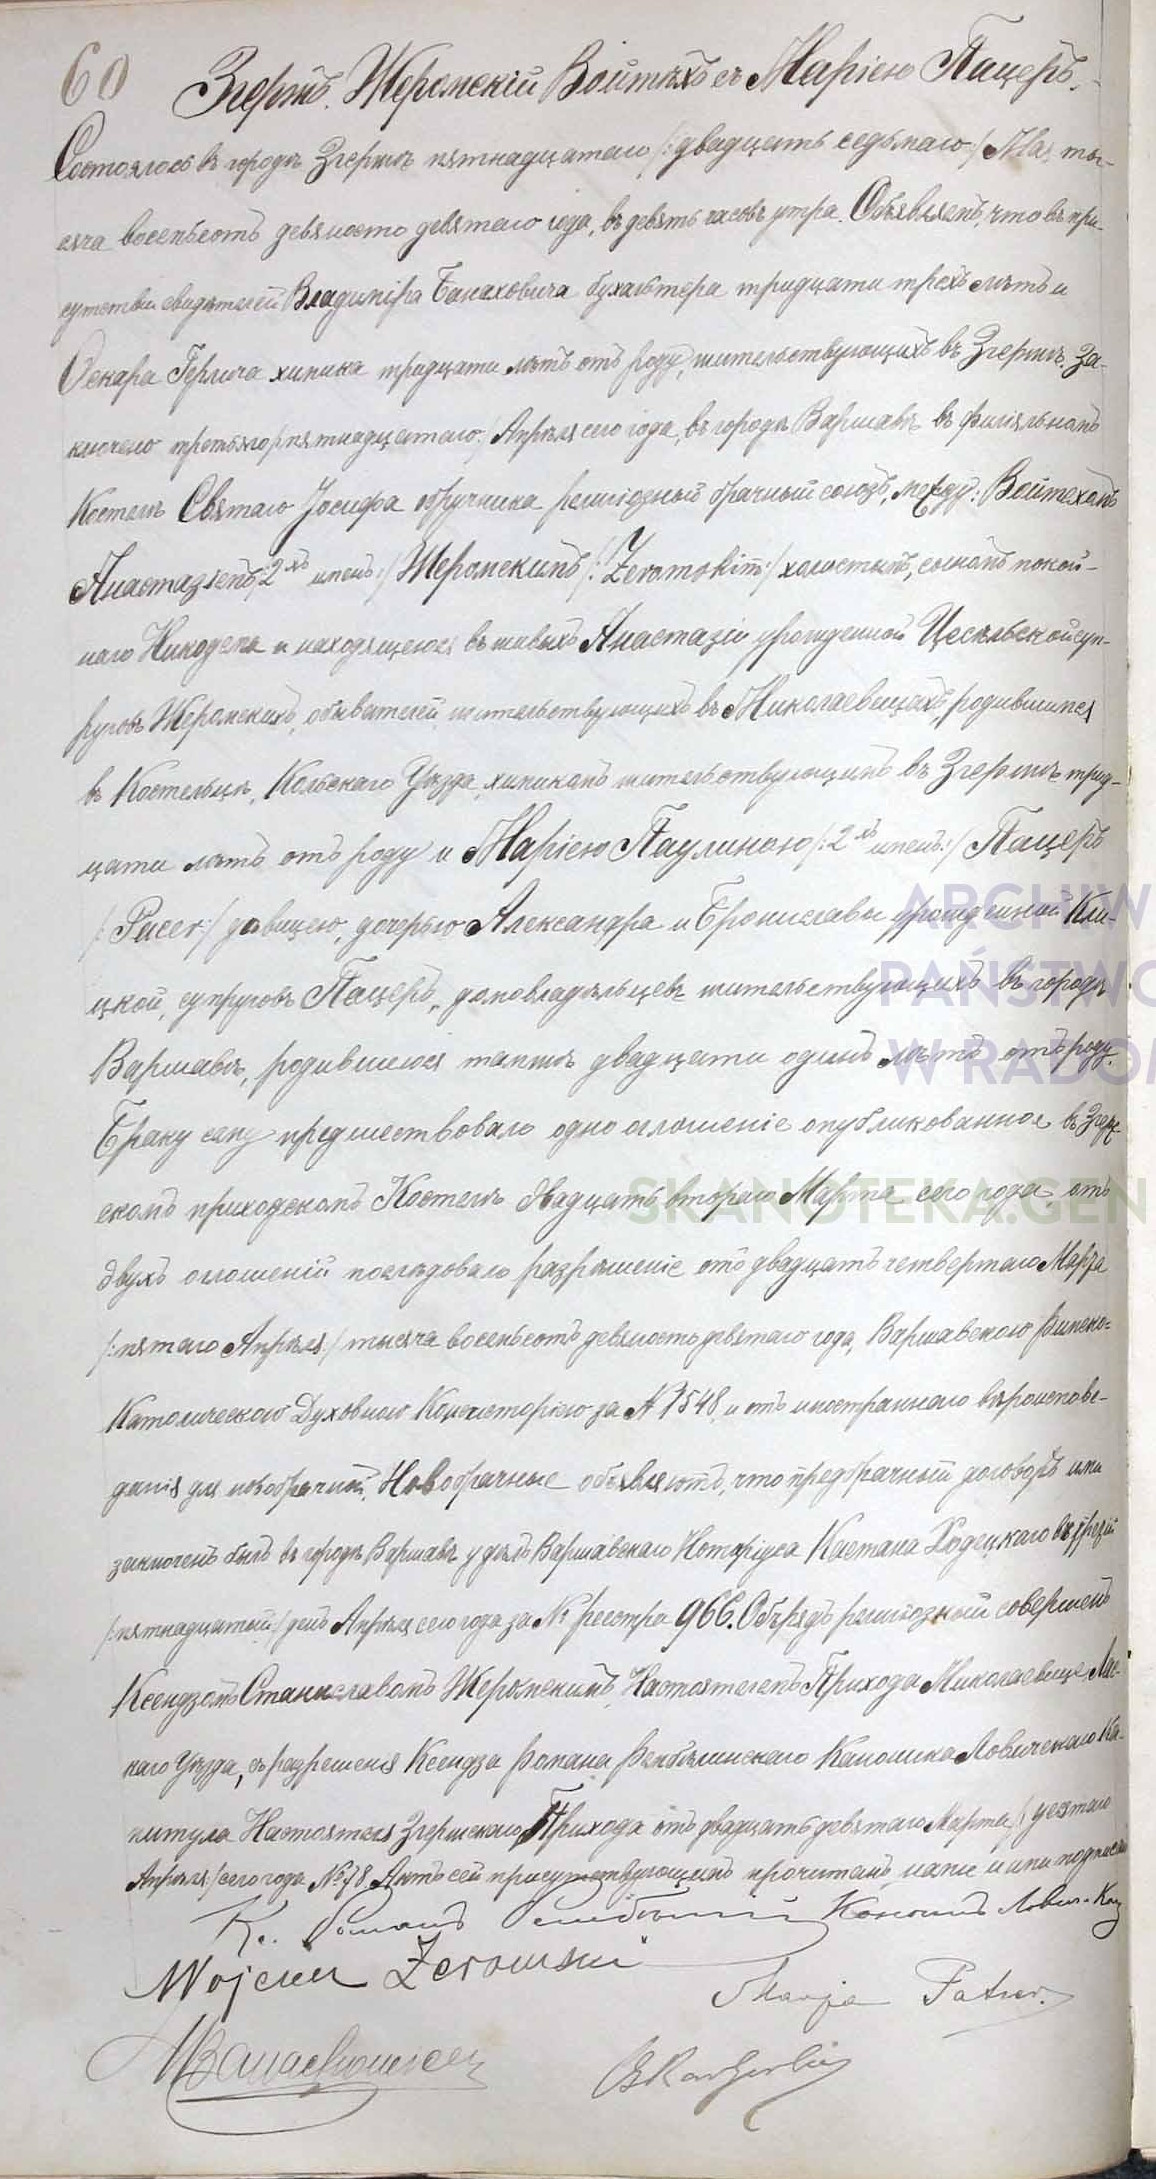 60 Згержъ. Жеромскій Войтѣхъ съ Маріею Пацеръ.
Состоялось въ городѣ Згержѣ пятнадцатаго /:двадцать седьмаго:/ Мая ты-
сяча восемьсотъ девяносто девятаго года, въ девять часовъ утра. Объявляемъ, что въ при-
сутствіи свидѣтелей Владиміра Банаховича бухалтера тридцати трехъ лѣтъ и
Оскара Герлича химика тридцати лѣтъ отъ роду, жительствующихъ въ Згержѣ, за-
ключено третьяго /пятнадцатаго:/ Апрѣля сего года, въ городѣ Варшавѣ въ филіяльномъ
Костелѣ Святаго Іосифа обручника религіозный брачный союзъ, между: Войтехомъ
Анастазіемъ /:2хъ именъ:/ Жеромскимъ /:Żeromskim:/ холостымъ, сыномъ покой-
наго Никодема и находящеюся въ живыхъ Анастазіи урожденной Цесельской суп-
руговъ Жеромскихъ, обывателей жительствующихъ въ Николаевицахъ, родившимся
въ Костельцѣ, Кольскаго Уѣзда, химикомъ жительствующимъ въ Згержѣ трид-
цати лѣтъ отъ роду и Маріею Паулиною /:2хъ именъ:/ Пацеръ
/:Pacer:/ дѣвицею, дочерью Александра и Брониславы урожденной Кли-
цкой, супруговъ Пацеръ, домовладѣльцевъ жительствующихъ въ городѣ
Варшавѣ, родившеюся тамже двадцати одинъ лѣтъ отъ роду.
Браку сему предшествовало одно оглошеніе опубликованное въ Згерж-
скомъ приходскомъ Костелѣ двадцать втораго Марта сего года, отъ
двухъ оглошеній послѣдовало разрѣшеніе отъ двадцать четвертаго Марта
/:пятаго Апрѣля:/ тысяча восемьсотъ девяносто девятаго года, Варшавскою Римско-
Католическою Духовною Консисторіею за № 1548, и отъ иностраннаго вѣроисповѣ-
данія для новобрачной. Новобрачные объявляютъ, что предбрачный договоръ ими
заключенъ былъ въ городѣ Варшавѣ у дѣлъ Варшавскаго Нотаріуса Каетана Ходецкаго въ третій
/:пятнадцатый:/ день Апрѣля сего года за № реестра 966. Обрядъ религіозный совершенъ
Ксендзомъ Станиславомъ Жеромскимъ, Настоятелемъ Прихода Миколаевице Лас-
каго Уѣзда, съ разрешенія Ксендза Романа Рембѣлинскаго Каноника Ловическаго Ка-
питула Настоятеля Згержскаго Прихода отъ двадцать девятаго Марта /:десятаго
Апрѣля:/ сего года № 78. Актъ сей присутствующимъ прочитанъ, нами и ими подписанъ
Кс. Романъ Рембѣлинскій Каноникъ Лович. Кап
Wojciech Żeromski
Marja Patzer.
WBanachowicz
Oskar Gerlicz
ARCHIW
PAŃSTWO
W RADOM
SKANOTEKA.GEN